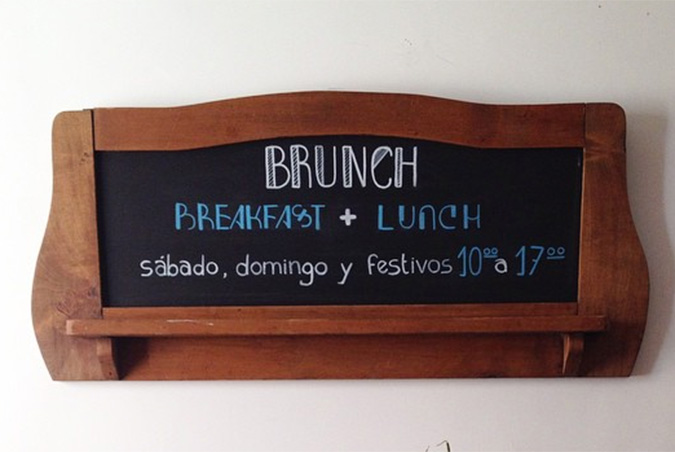 BRUNCH
BREAKFAST + LUNCH
sábado, domingo y festivos 10⁰⁰ a 17⁰⁰